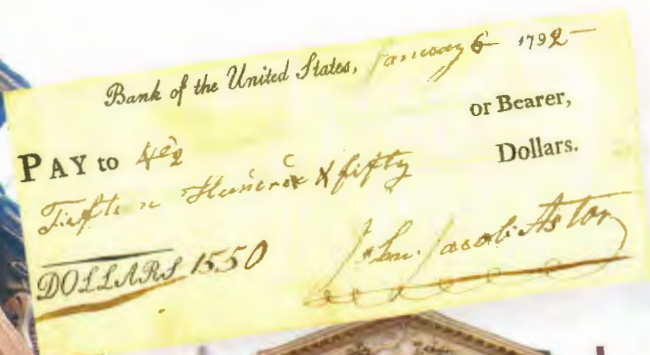 Bank of the United States, January 6 1792
PAY to or Bearer,
Fifteen Hundred & fifty Dollars.
DOLLARS 1550 John Jacob Astor